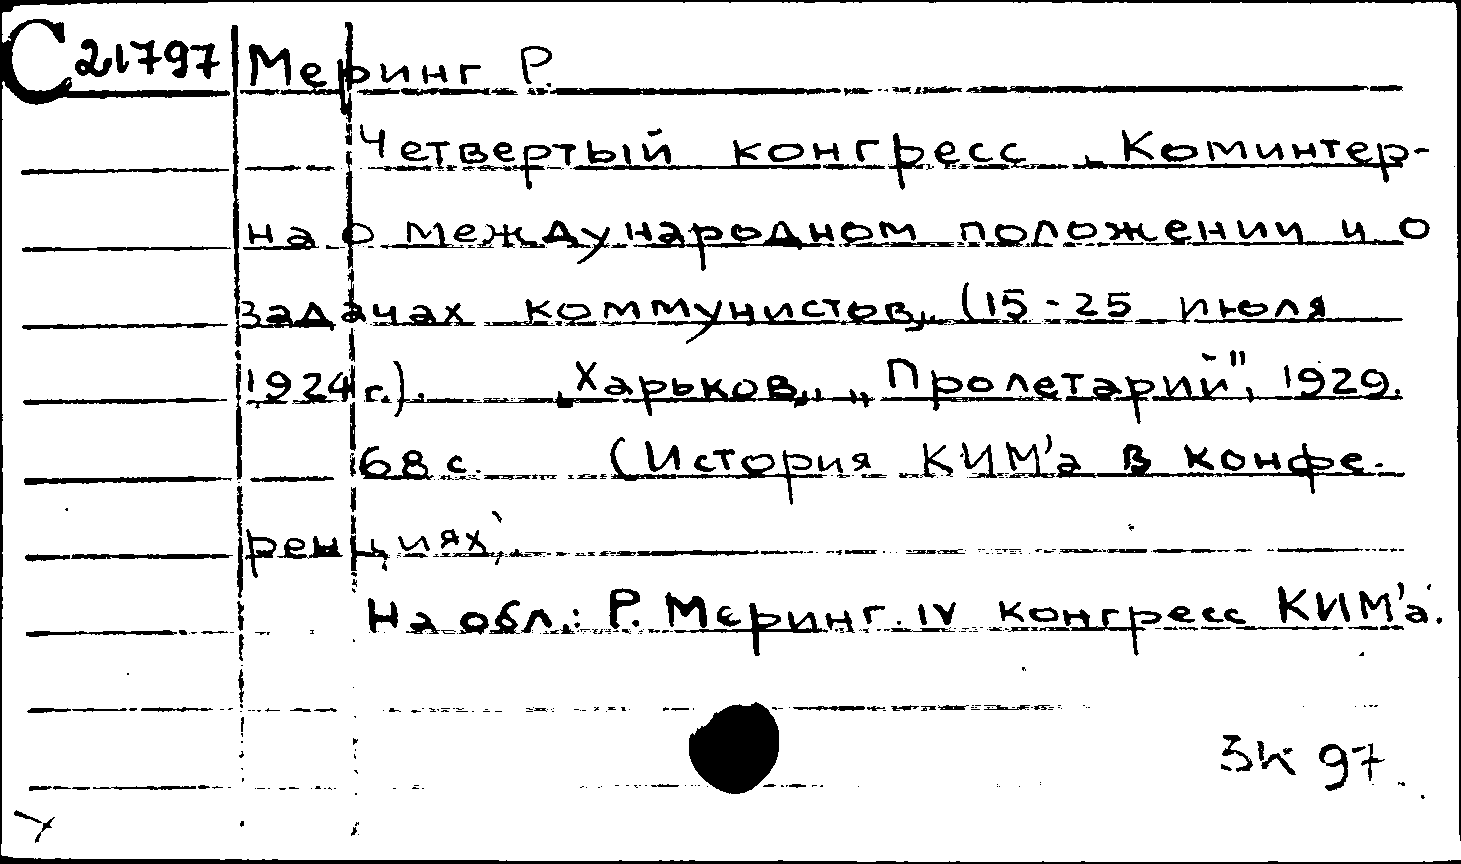 С 21797 Меринг Р.
Четвертый конгресс Коминтер-
на о международном положении и о
задачах коммунистов, (15-25 июля
1924 г.). Харьков, „Пролетарий", 1929.
68 с. (История КИМ'а в конфе-
ренциях)
На обл.: Р. Меринг. IV конгресс КИМ'а.
ЗК 97